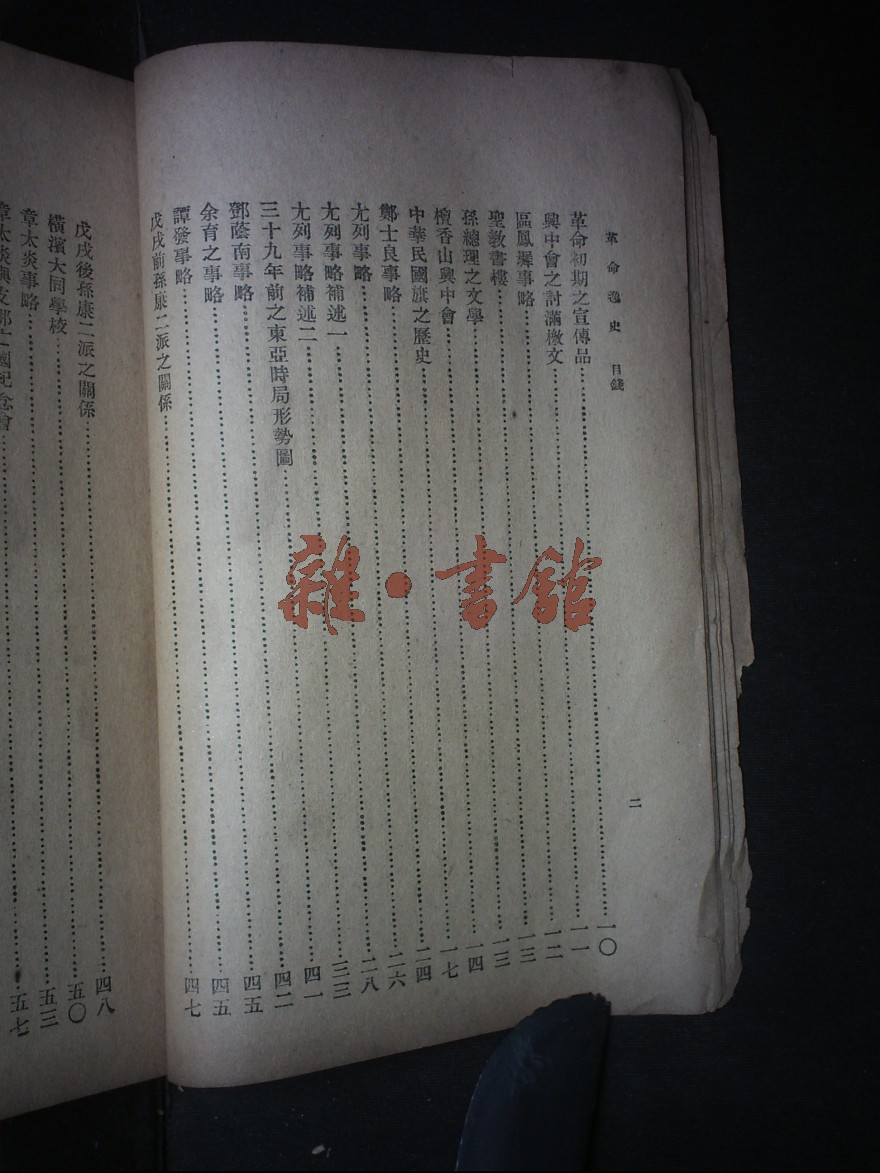 革命逸史 目錄 二
革命初期之宣傳品 一〇
興中會之討滿檄文 一一
區鳳墀事略 一二
聖教書樓 一三
孫總理之文學 一三
檀香山興中會 一四
中華民國旗之歷史 一七
鄭士良事略 二四
尢列事略 二六
尢列事略補述一 二八
尢列事略補述二 三三
三十九年前之東亞時局形勢圖 四一
鄧蔭南事略 四二
余育之事略 四五
譚發事略 四五
戊戌前孫康二派之關係 四七
戊戌後孫康二派之關係 四八
橫濱大同學校 五〇
章太炎事略 五三
章太炎與支那亡國紀念會 五七
雜·書館